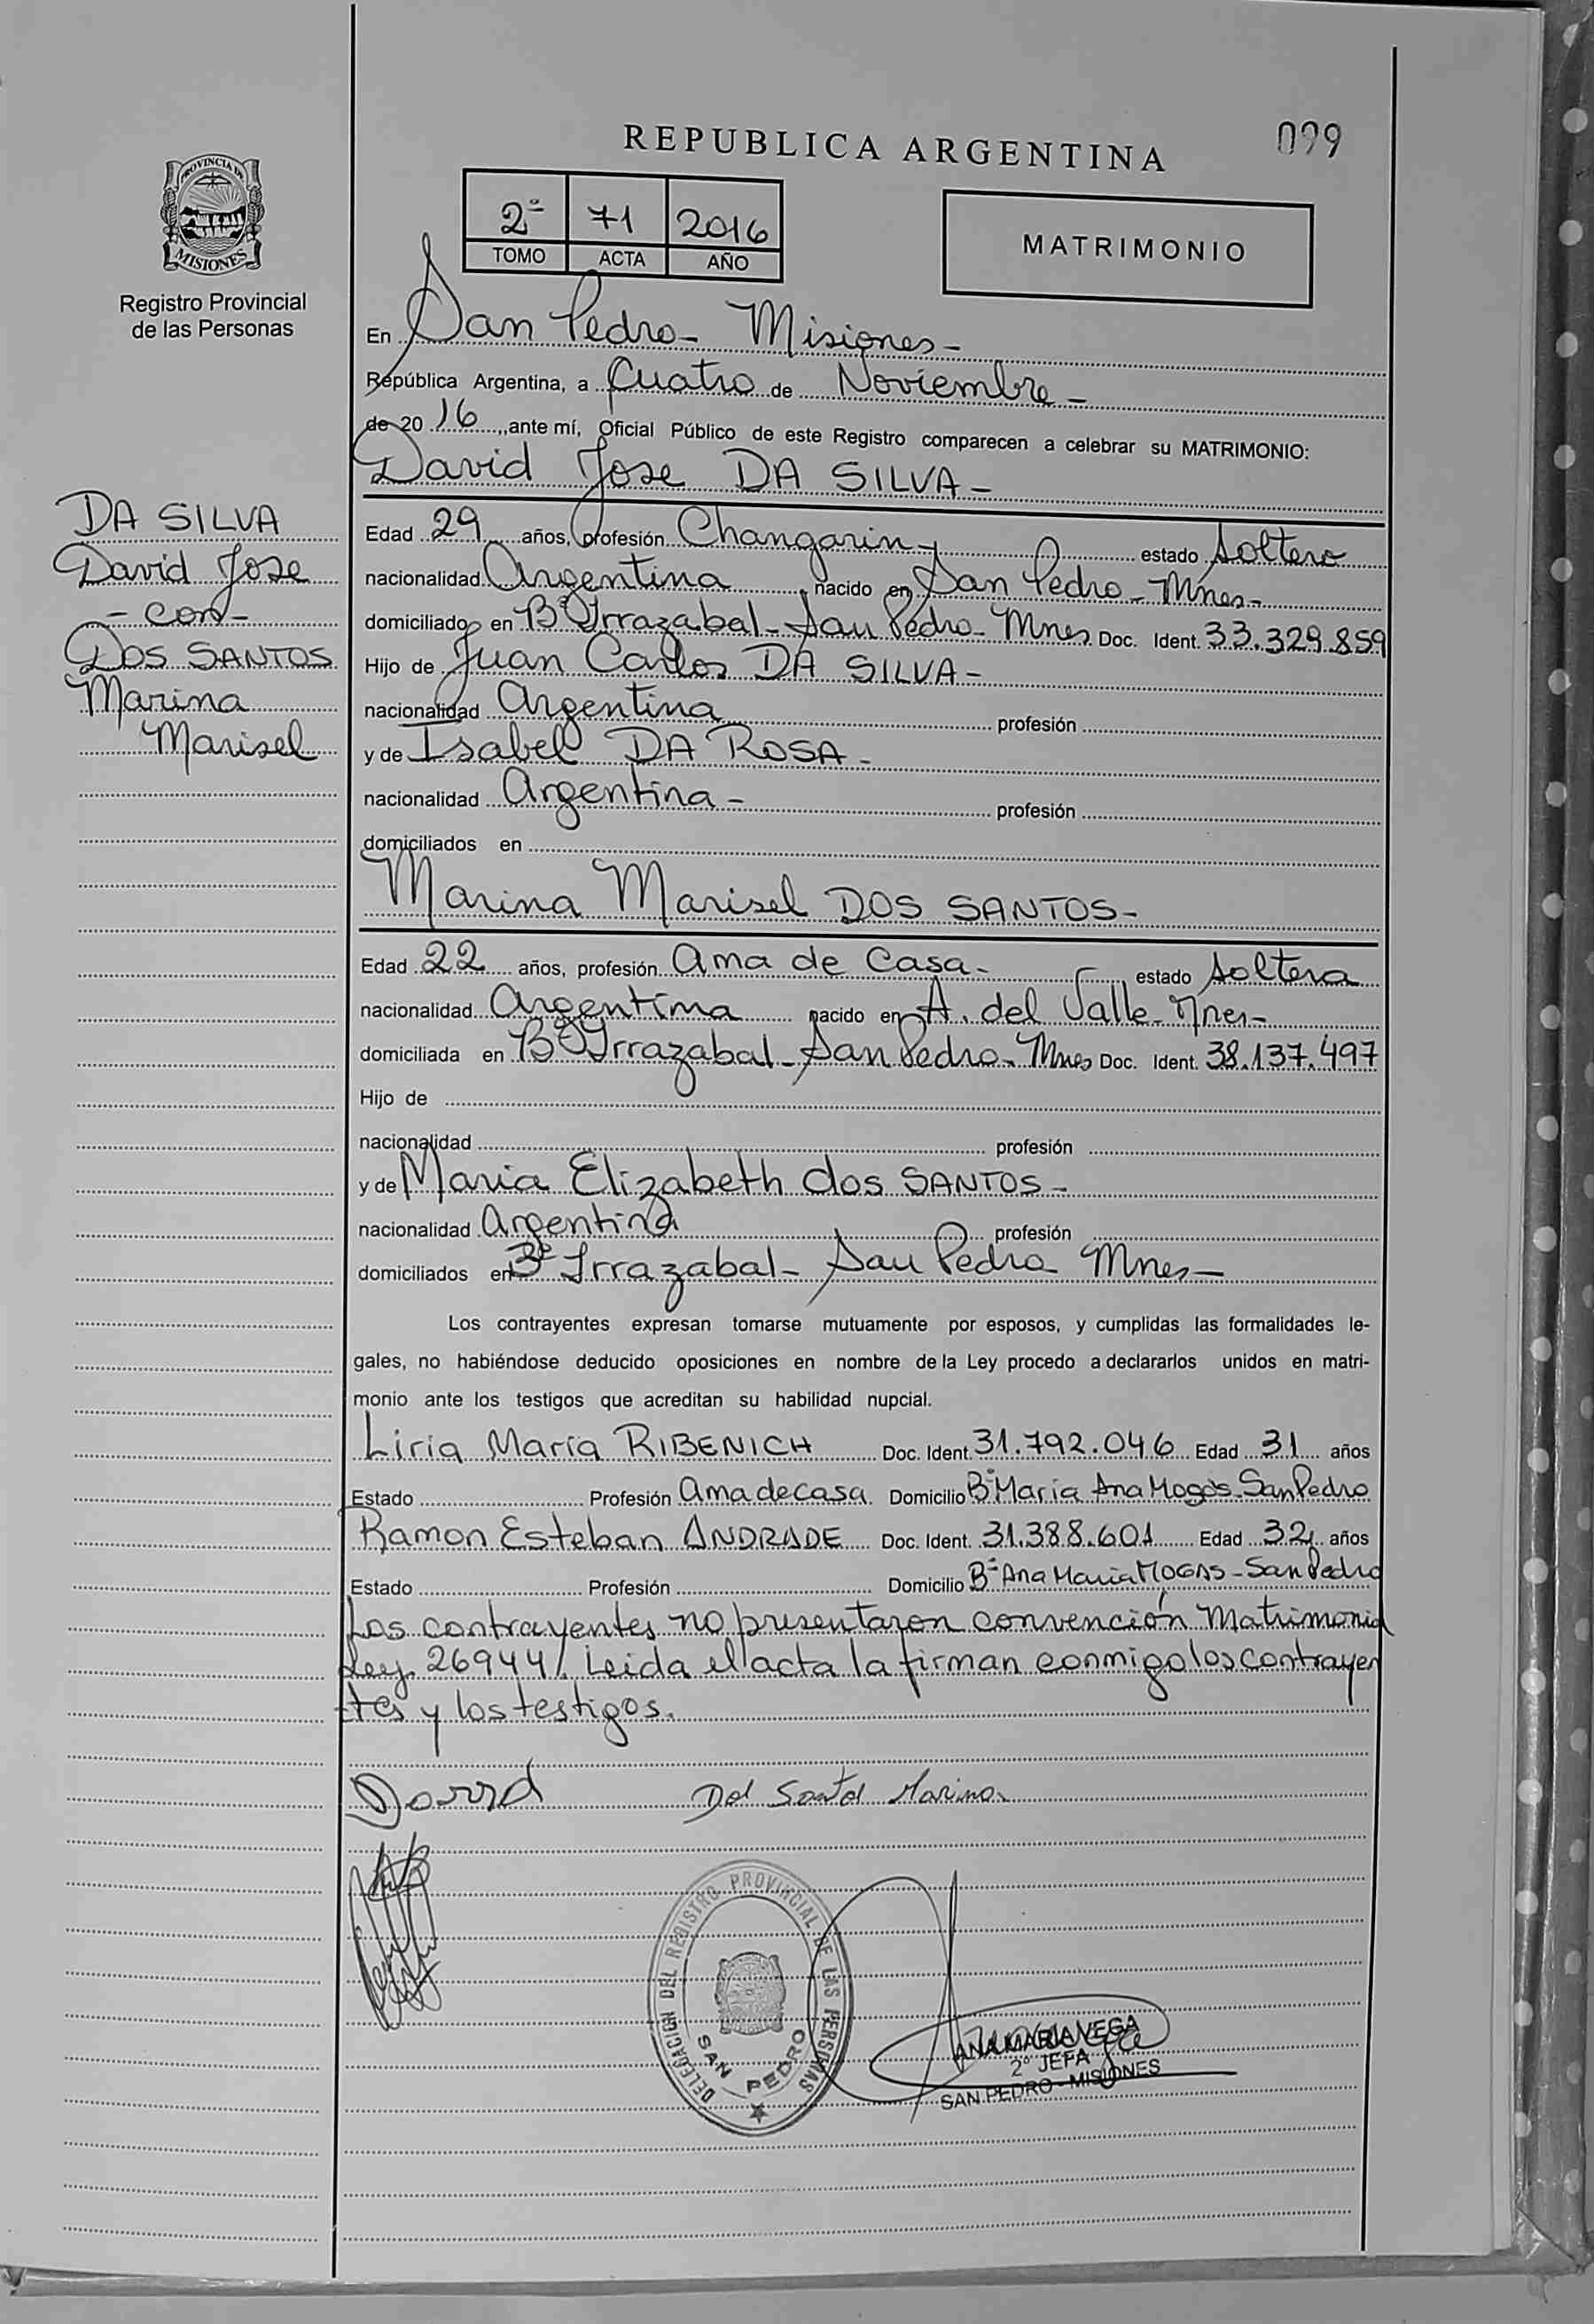 REPUBLICA ARGENTINA
099
PROVINCIA DE
MISIONES
Registro Provincial
de las Personas
2º 71 2016
TOMO ACTA AÑO
MATRIMONIO
En San Pedro - Misiones -
República Argentina, a Cuatro de Noviembre -
de 2016, ante mí, Oficial Público de este Registro comparecen a celebrar su MATRIMONIO:
David Jose DA SILVA -
DA SILVA
David Jose
- con -
DOS SANTOS
Marina
Marisel
Edad 29 años, profesión Changarin - estado soltero
nacionalidad Argentina nacido en San Pedro - Mnes -
domiciliado en Bº Irrazabal - San Pedro - Mnes Doc. Ident. 33.329.859
Hijo de Juan Carlos DA SILVA -
nacionalidad Argentina profesión
y de Isabel DA ROSA -
nacionalidad Argentina - profesión
domiciliados en
Marina Marisel DOS SANTOS -
Edad 22 años, profesión Ama de Casa - estado soltera
nacionalidad Argentina nacido en A. del Valle - Mnes -
domiciliada en Bº Irrazabal - San Pedro - Mnes Doc. Ident. 38.137.497
Hijo de
nacionalidad profesión
y de Maria Elizabeth dos SANTOS -
nacionalidad Argentina profesión
domiciliados en Bº Irrazabal - San Pedro Mnes -
Los contrayentes expresan tomarse mutuamente por esposos, y cumplidas las formalidades le-
gales, no habiéndose deducido oposiciones en nombre de la Ley procedo a declararlos unidos en matri-
monio ante los testigos que acreditan su habilidad nupcial.
Liria María RIBENICH Doc. Ident. 31.792.046 Edad 31 años
Estado Profesión Ama de casa Domicilio Bº María Ana Mogas - San Pedro
Ramon Esteban ANDRADE Doc. Ident. 31.388.601 Edad 32 años
Estado Profesión Domicilio Bº Ana Maria MOGAS - San Pedro
Los contrayentes no presentaron convención Matrimonial
Ley. 26944/. Leida el acta la firman conmigo los contrayen
tes y los testigos.
Dos Santos Marina
DELEGACION DEL REGISTRO PROVINCIAL DE LAS PERSONAS
SAN PEDRO
ANA MARIA VEGA
2º JEFA
SAN PEDRO - MISIONES